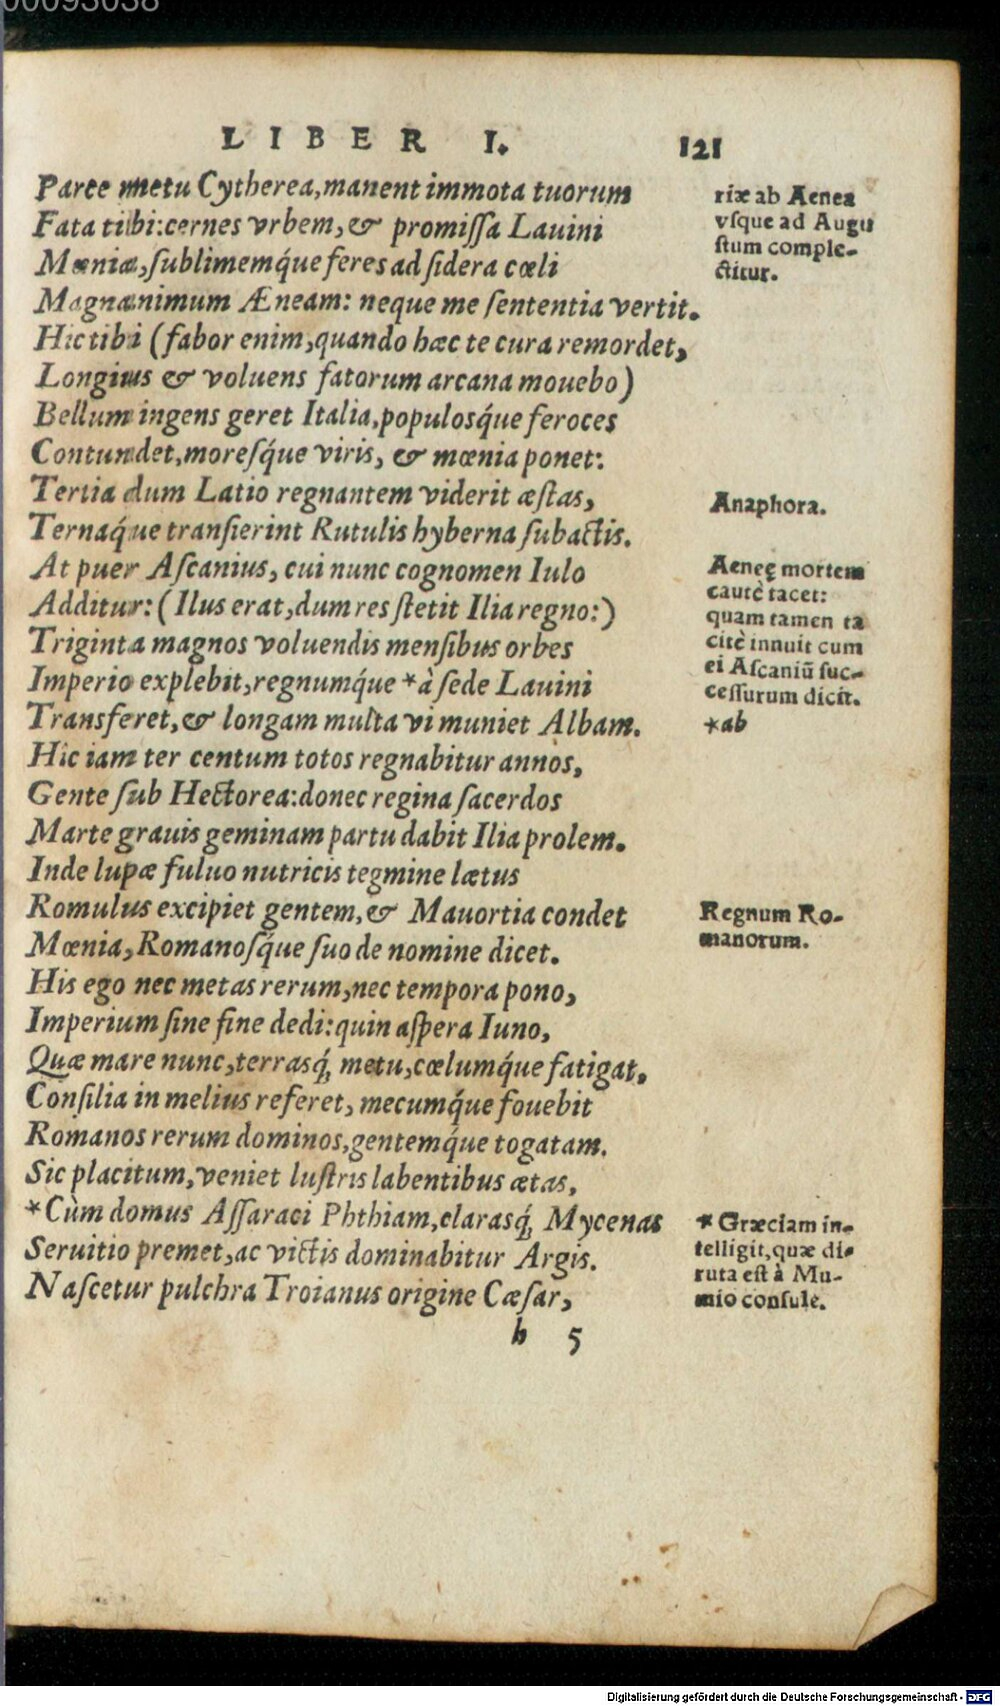 00093038
LIBER I. 121
Parce metu Cytherea, manent immota tuorum
Fata tibi: cernes vrbem, & promiſſa Lauini
Mœnia, ſublimemq́ue feres ad ſidera cœli
Magnanimum Æneam: neque me ſententia vertit.
Hic tibi (fabor enim, quando hæc te cura remordet,
Longius & voluens fatorum arcana mouebo)
Bellum ingens geret Italia, populosq́ue feroces
Contundet, moreſq́ue viris, & mœnia ponet:
Tertia dum Latio regnantem viderit æſtas,
Ternaq́ue tranſierint Rutulis hyberna ſubactis.
At puer Aſcanius, cui nunc cognomen Iulo
Additur: (Ilus erat, dum res ſtetit Ilia regno:)
Triginta magnos voluendis menſibus orbes
Imperio explebit, regnumq́ue *à ſede Lauini
Transferet, & longam multa vi muniet Albam.
Hic iam ter centum totos regnabitur annos,
Gente ſub Hectorea: donec regina ſacerdos
Marte grauis geminam partu dabit Ilia prolem.
Inde lupæ fuluo nutricis tegmine lætus
Romulus excipiet gentem, & Mauortia condet
Mœnia, Romanoſq́ue ſuo de nomine dicet.
His ego nec metas rerum, nec tempora pono,
Imperium ſine fine dedi: quin aſpera Iuno,
Quæ mare nunc, terrasq́; metu, cœlumq́ue fatigat,
Conſilia in melius referet, mecumq́ue fouebit
Romanos rerum dominos, gentemq́ue togatam.
Sic placitum, veniet luſtris labentibus ætas,
*Cùm domus Aſſaraci Phthiam, clarasq́; Mycenas
Seruitio premet, ac victis dominabitur Argis.
Naſcetur pulchra Troianus origine Cæſar,
h 5
riæ ab Aenea
vſque ad Augu
ſtum comple-
ctitur.
Anaphora.
Aeneę mortem
cautè tacet:
quam tamen ta
citè innuit cum
ei Aſcaniũ ſuc-
ceſſurum dicit.
*ab
Regnum Ro-
manorum.
* Græciam in-
telligit, quæ di-
ruta eſt à Mu-
mio conſule.
Digitalisierung gefördert durch die Deutsche Forschungsgemeinschaft - DFG